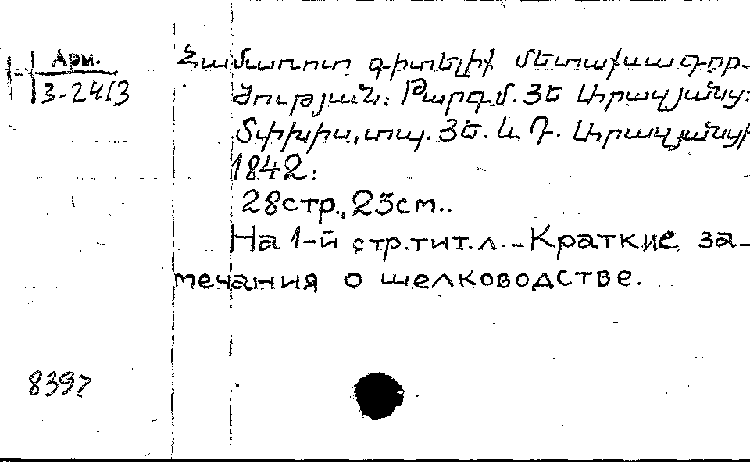 Арм.
3-2413
Համառոտ գիտելիք մետաքսագոր-
ծության: Թարգմ. ՅԵ Արազյանց:
Տփխիս, տպ. ՅԵ. և Դ. Արազյանց
1842:
28стр., 23см..
На 1-й стр.тит.л.-Краткие за-
мечания о шелководстве.
8397